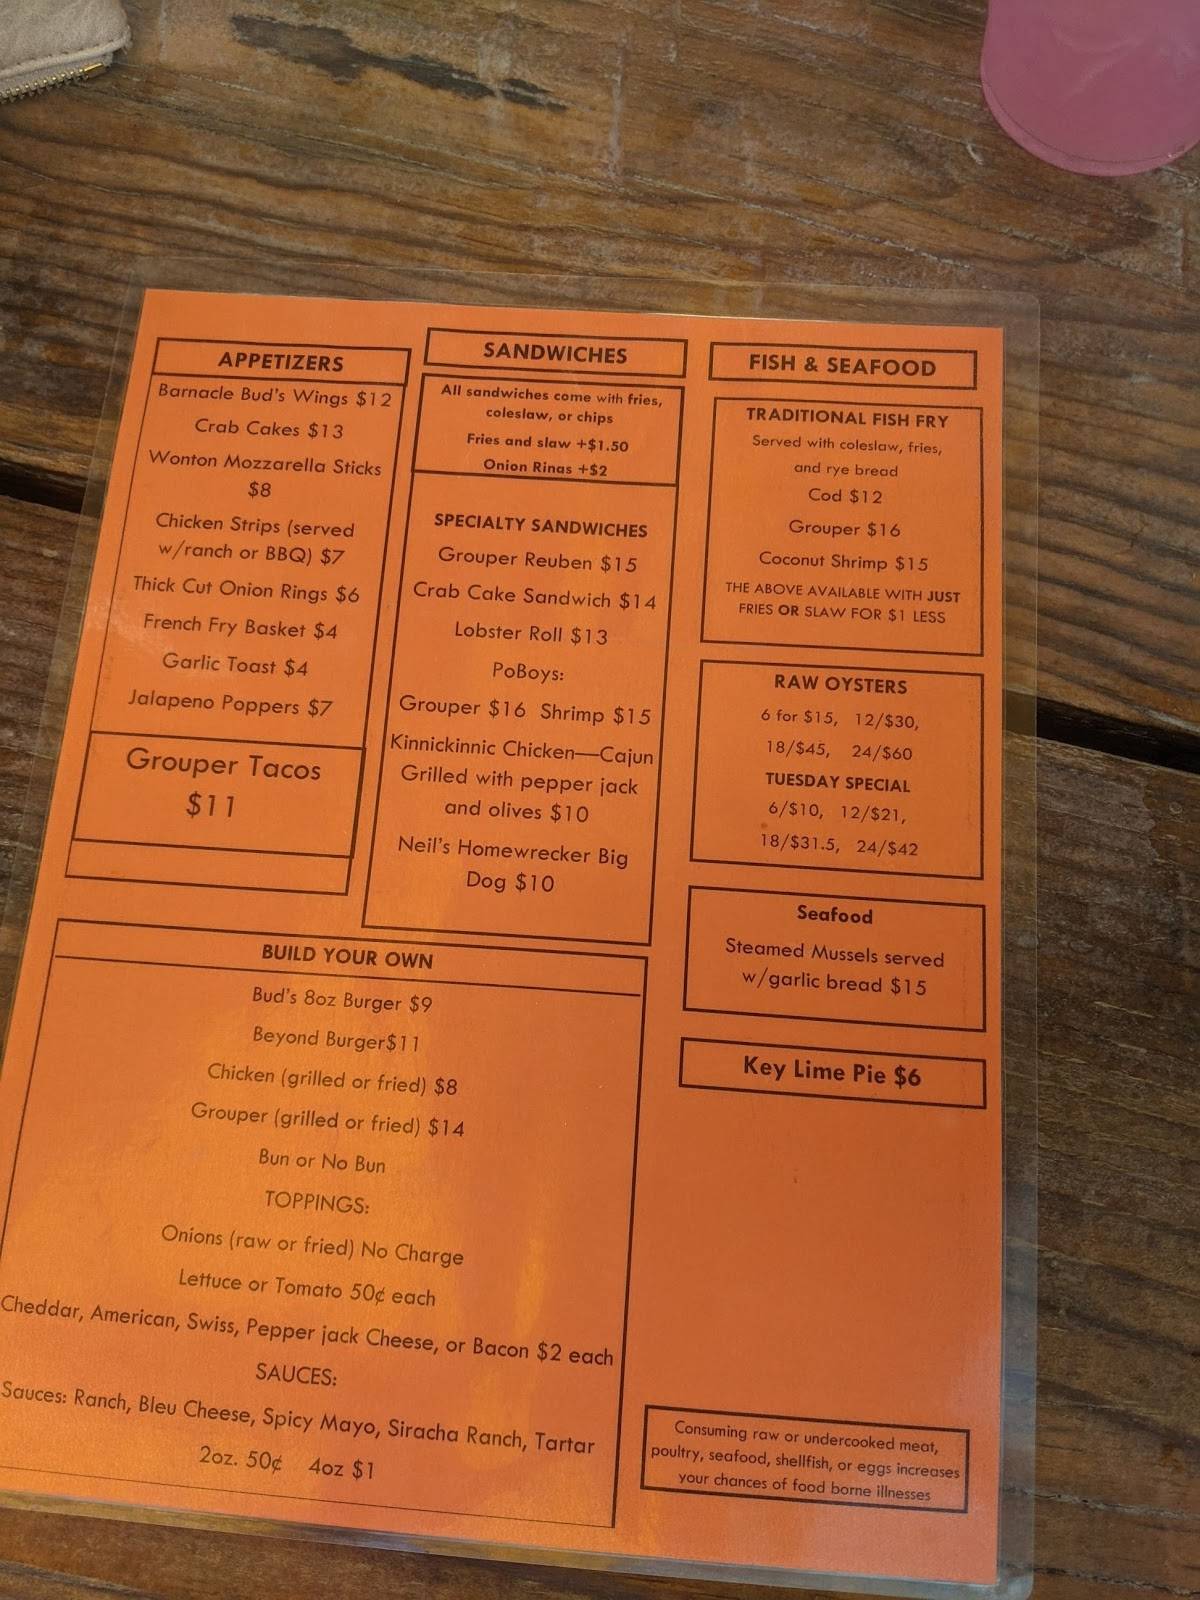 APPETIZERS
Barnacle Bud's Wings $12
Crab Cakes $13
Wonton Mozzarella Sticks
$8
Chicken Strips (served
w/ranch or BBQ) $7
Thick Cut Onion Rings $6
French Fry Basket $4
Garlic Toast $4
Jalapeno Poppers $7
Grouper Tacos
$11
SANDWICHES
All sandwiches come with fries,
coleslaw, or chips
Fries and slaw +$1.50
Onion Rings +$2
SPECIALTY SANDWICHES
Grouper Reuben $15
Crab Cake Sandwich $14
Lobster Roll $13
PoBoys:
Grouper $16 Shrimp $15
Kinnickinnic Chicken—Cajun
Grilled with pepper jack
and olives $10
Neil's Homewrecker Big
Dog $10
FISH & SEAFOOD
TRADITIONAL FISH FRY
Served with coleslaw, fries,
and rye bread
Cod $12
Grouper $16
Coconut Shrimp $15
THE ABOVE AVAILABLE WITH JUST
FRIES OR SLAW FOR $1 LESS
RAW OYSTERS
6 for $15, 12/$30,
18/$45, 24/$60
TUESDAY SPECIAL
6/$10, 12/$21,
18/$31.5, 24/$42
Seafood
Steamed Mussels served
w/garlic bread $15
Key Lime Pie $6
BUILD YOUR OWN
Bud's 8oz Burger $9
Beyond Burger$11
Chicken (grilled or fried) $8
Grouper (grilled or fried) $14
Bun or No Bun
TOPPINGS:
Onions (raw or fried) No Charge
Lettuce or Tomato 50¢ each
Cheddar, American, Swiss, Pepper jack Cheese, or Bacon $2 each
SAUCES:
Sauces: Ranch, Bleu Cheese, Spicy Mayo, Siracha Ranch, Tartar
2oz. 50¢ 4oz $1
Consuming raw or undercooked meat,
poultry, seafood, shellfish, or eggs increases
your chances of food borne illnesses